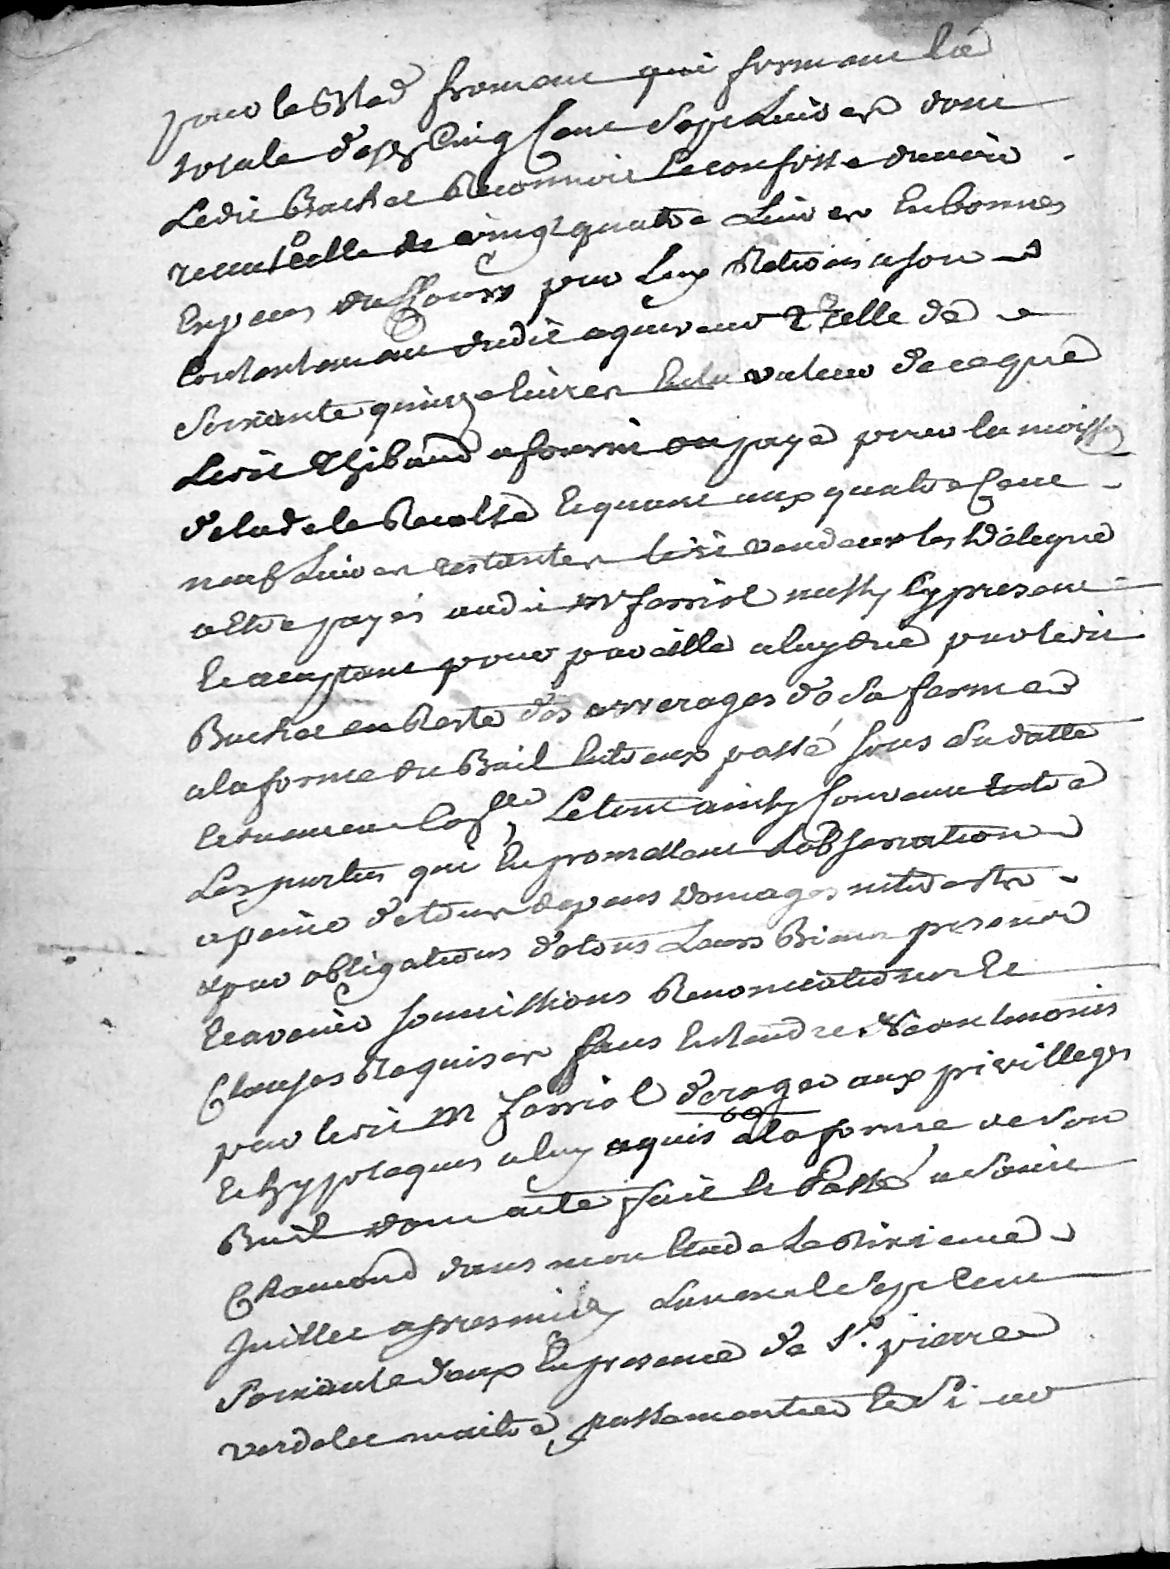 pour le Bled froment qui forment la
totale des cinq Cent Sept Livres dont
Ledit Bachat Reconnoit Le confesse d'avoir
receu celle de vingt quatre Livres En bonnes
Especes du Cours par Luy Retirées a son
Contentement dudit aqureur & celle de
Soixante quinze livres En la valleur de ce que
Ledit Thibaud a fourni ou payé pour la moisson
de lad. Recolte Et quant aux quatre Cent
neuf Livres restantes ledit vendeur les Délegue
a Etre payés audit Mr ferriol icy present
Et acceptant pour pareille a luy due par ledit
Bachat en Reste des arrerages de Sa ferme
a la forme du Bail Entreux passé sous Sa datte
Le tout ainsy Convenu Entre
Les parties qui En promettent L'observation
a peine de tous depens Domages interests
& par obligations de tous Leurs Biens presents
Et avenir soumissions Renonciations Et
Clauses Requises sans Entendre Neantmoins
par ledit Mr ferriol deroger aux privilleges
Et hypoteques a luy aquis a la forme de Son
Bail dont acte fait & Passé a Saint
Chamond dans mon Etude Le Sixieme
Juillet apres midy Lan mil Sept Cent
Soixante deux En presence de Sr. pierre
Verdelet maitre passementier & Sieur